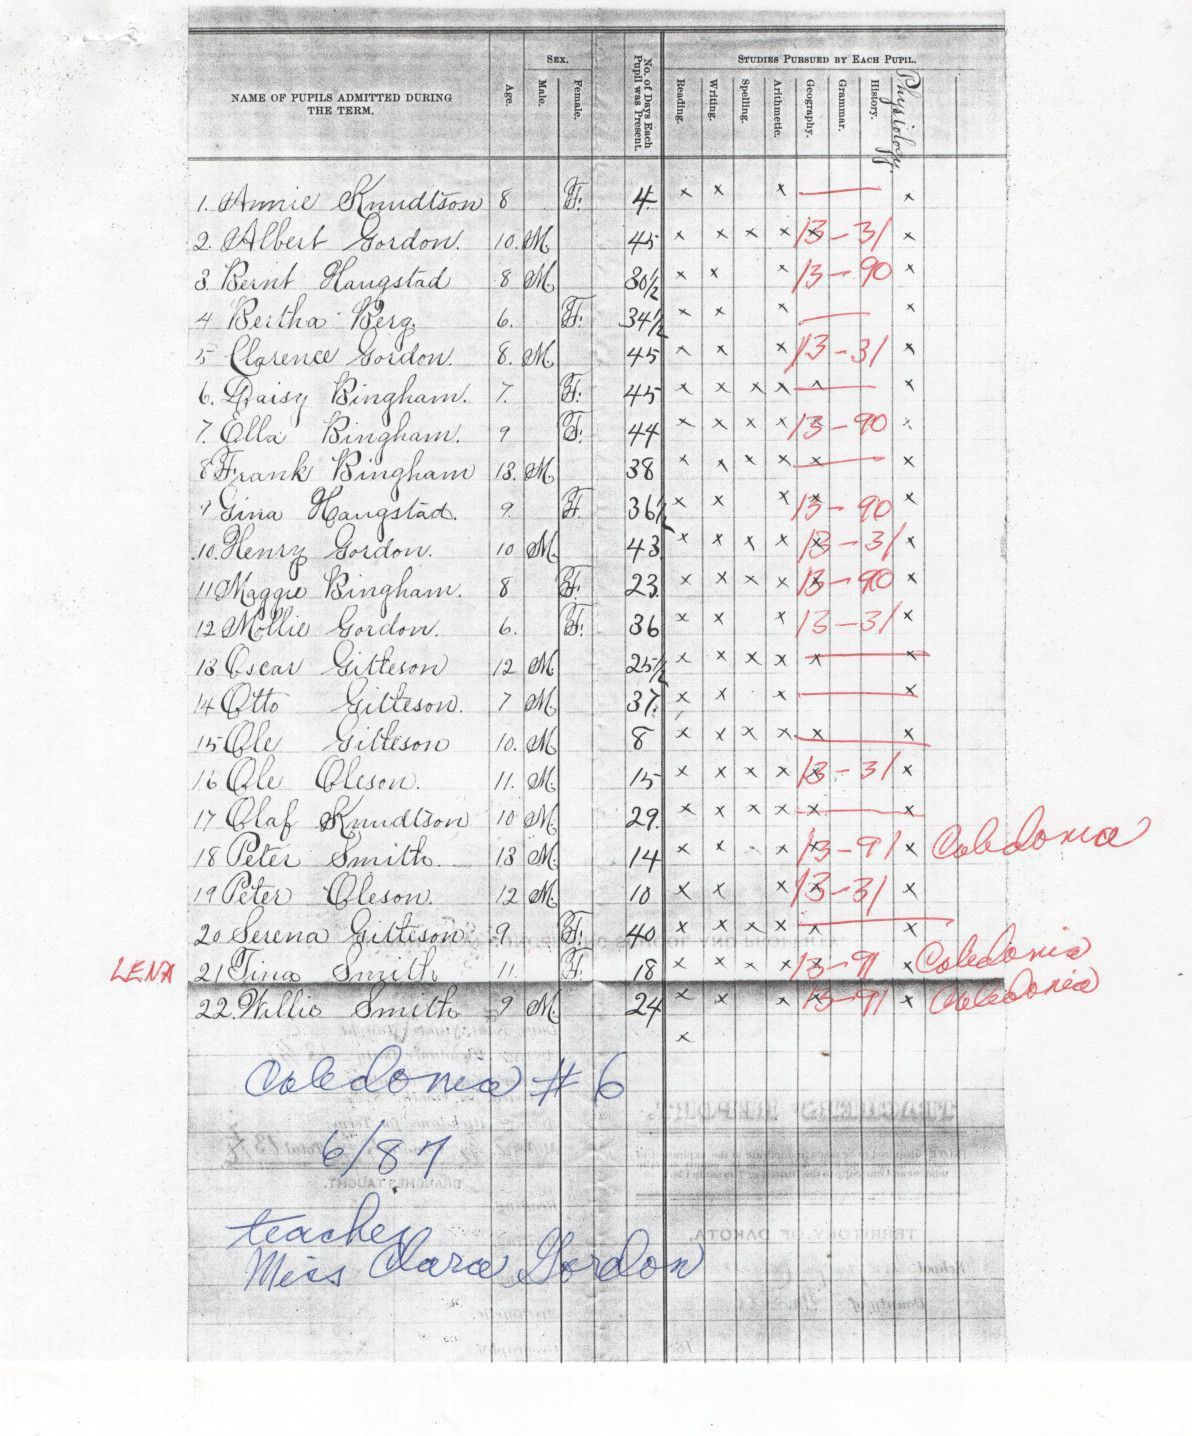 NAME OF PUPILS ADMITTED DURING THE TERM. Age. SEX. Male. Female. No. of Days Each Pupil was Present. STUDIES PURSUED BY EACH PUPIL. Reading. Writing. Spelling. Arithmetic. Geography. Grammar. History. Physiology.
1. Annie Knudtson 8 F. 4 x x x — x
2. Albert Gordon. 10. M 45 x x x x x 13-31 x
3 Bernt Haugstad 8 M 30 1/2 x x x 13-90 x
4 Bertha Berg. 6. F. 34 1/2 x x x — x
5 Clarence Gordon. 8. M 45 x x x 13-31 x
6. Daisy Bingham. 7. F. 45 x x x x x — x
7. Ella Bingham. 9 F. 44 x x x x x 13-90 x
8 Frank Bingham 13. M 38 x x x x x — x
9 Gina Haugstad. 9. F 36 1/2 x x x x 13-90 x
10. Henry Gordon. 10 M. 43 x x x x x 13-31 x
11 Maggie Bingham. 8 F. 23. x x x x x 13-90 x
12 Mollie Gordon. 6. F. 36 x x x 13-31 x
13 Oscar Gilteson 12 M 25 1/2 x x x x x — x
14 Otto Gilteson. 7 M. 37. x x x — x
15 Ole Gilteson 10. M 8 x x x x x — x
16 Ole Oleson. 11. M. 15 x x x x x 13-31 x
17 Olaf Knudtson 10 M. 29. x x x x x — x
18 Peter Smith. 13 M. 14 x x x x 13-91 x Caledonia
19 Peter Oleson. 12 M. 10 x x x x 13-31 x
20 Serena Gilteson 9 F. 40 x x x x x — x
LENA 21 Tina Smith 11. F. 18 x x x x x 13-91 x Caledonia
22. Willie Smith 9 M. 24 x x x x 13-91 x Caledonia
x
Caledonia # 6
6/87
teacher
Miss Clara Gordon